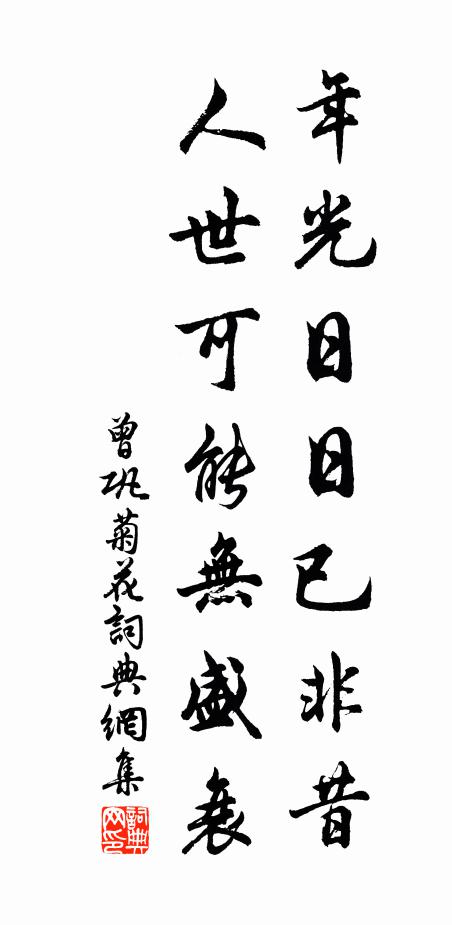 年光日日已非昔
人世可能無盛衰
曾巩菊花詞典網集
詞典网印